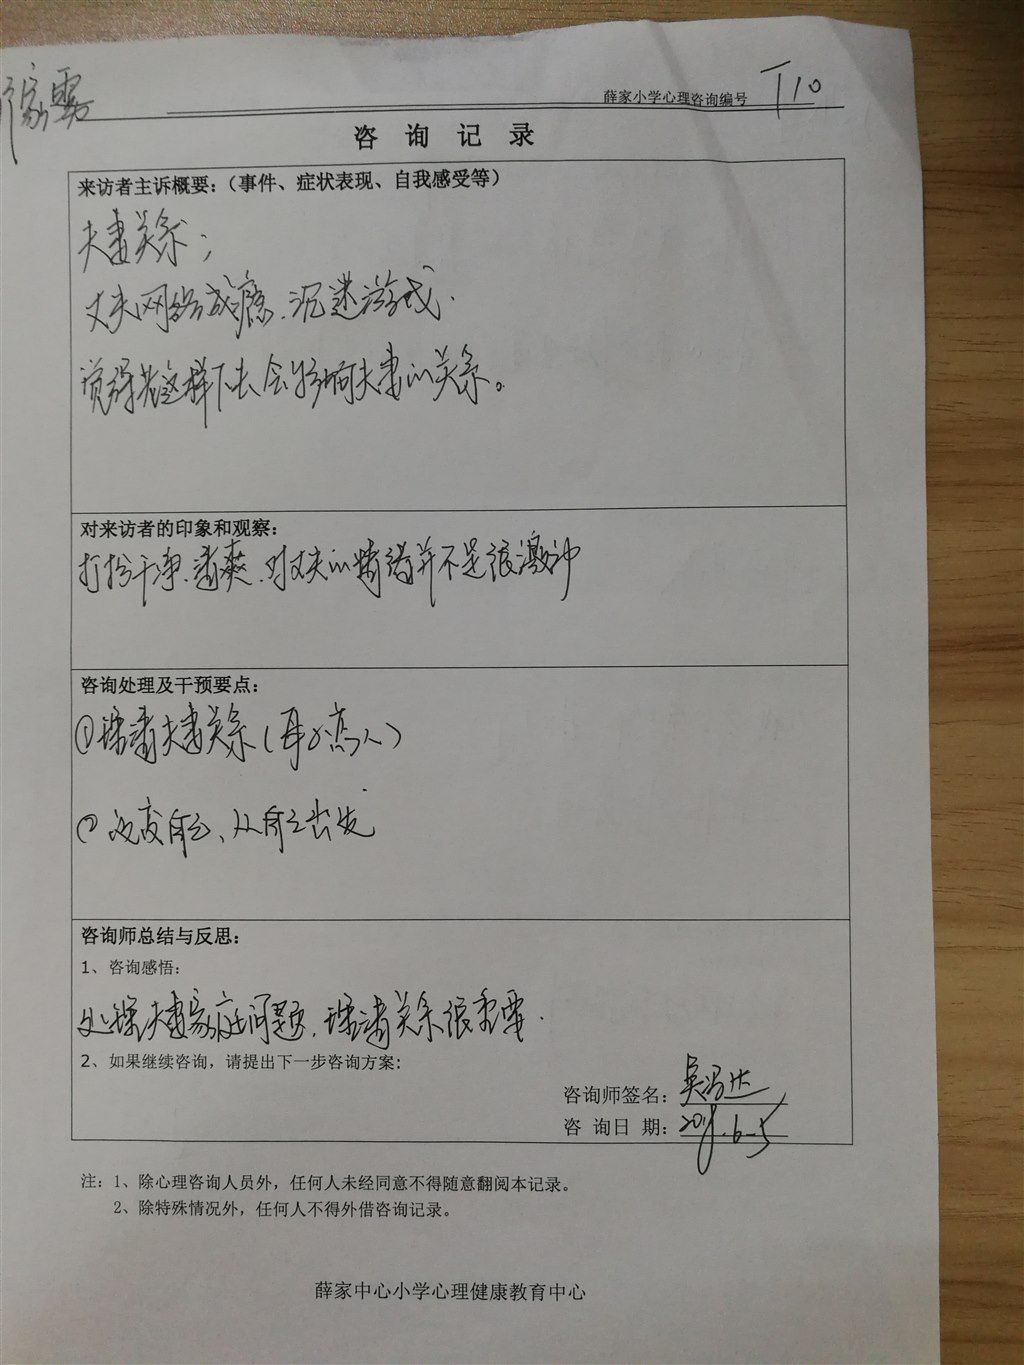 薛家小学心理咨询编号 T10
咨询记录
来访者主诉概要:(事件、症状表现、自我感受等)
夫妻关系;
丈夫网络成瘾、沉迷游戏.
觉得若这样下去会影响夫妻的关系。
对来访者的印象和观察:
打扮干净、清爽、对丈夫的情绪并不是很激动
咨询处理及干预要点:
①理清夫妻关系(
② 改变自己、从自己出发
咨询师总结与反思:
1、咨询感悟:
处理夫妻家庭问题,理清关系很重要.
2、如果继续咨询,请提出下一步咨询方案:
咨询师签名:
咨 询日 期: 6-5
注:1、除心理咨询人员外,任何人未经同意不得随意翻阅本记录。
2、除特殊情况外,任何人不得外借咨询记录。
薛家中心小学心理健康教育中心